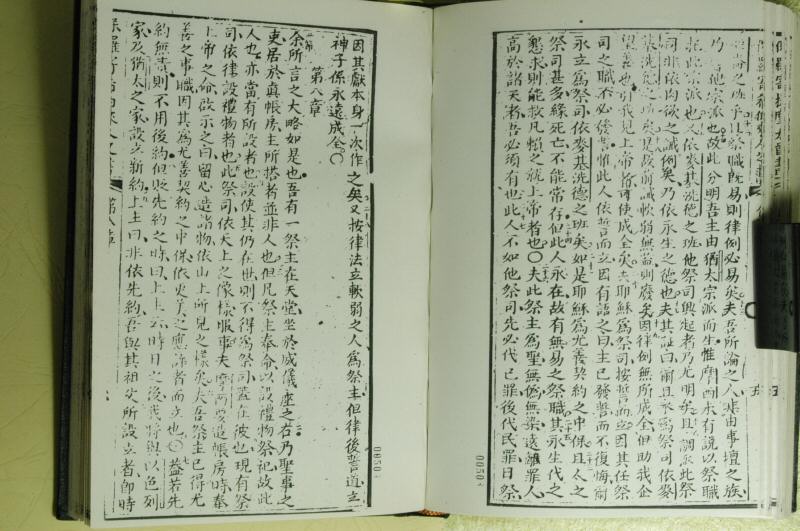 班乎且祭職既易則律例必易矣夫吾所論之人非由事壇之族
乃他宗派也故此分明吾主由猶太宗派而生惟摩西未有說以祭職
此宗派也又依麥基洗德之班他祭司興起者乃尤明矣且調派此祭
司非依肉欲之誡例矣乃依永生之德也夫其証曰爾且永爲祭司依麥
基洗德之班矣是故前誡軟弱無益則廢矣因律例無所成全但助我企
望善也引我見上帝皆可使成全矣夫耶穌爲祭司按誓而立因其任祭
司之職不必發誓惟此人依誓而立因有語之曰主已發誓而不復悔爾
永立爲祭司依麥基洗德之班矣如是耶穌爲尤善契約之中保且太之
祭司甚多緣死亡不能常存但此人永在故有無易之祭職其永生代之
懇求則能救凡賴之就上帝者也〇夫此祭主爲聖無僞無染遠離罪人
高於諸天者吾必須有也此人不如他祭司先必代己罪後代民罪日祭
因其獻本身一次作之矣又按律法立軟弱之人爲祭主但律後誓道立
神子係永遠成全〇
第八章
余所言之大略如是也吾有一祭主在天堂坐於威儀座之右乃聖事之
吏居於眞帳房主所搭者並非人也但凡祭主奉命以設禮物祭祀故此
人也亦當有所設者也設使其仍在世則不得爲祭司蓋在彼也現有祭
司依律設禮物者也此祭司依天上之像樣服事夫摩西要造帳房時奉
上帝之命啟示之曰留心造諸物依山上所見之樣矣夫吾祭主已得尤
善之事職因其爲尤善契約之中保依更美之應許者而立也〇蓋若先
約無責則不用後約但貶先約之時曰上主云時日之後我將與以色列
家及猶太之家設立新約上主曰非依先約吾與其祖父所設立者即時
0050
0050